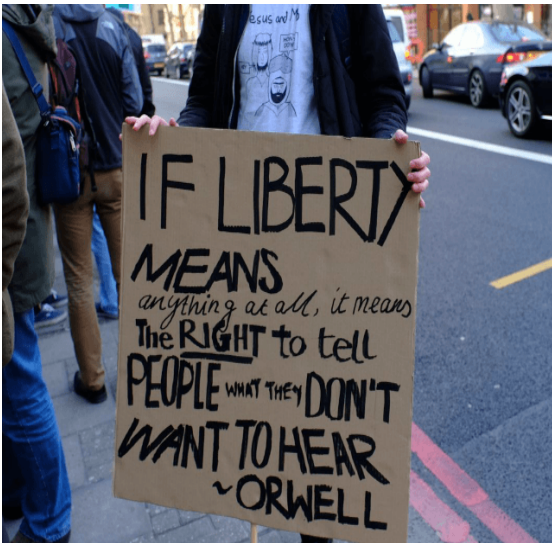 Jesus and M
IF LIBERTY
MEANS
anything at all, it means
The RIGHT to tell
PEOPLE WHAT THEY DON'T
WANT TO HEAR
~ORWELL